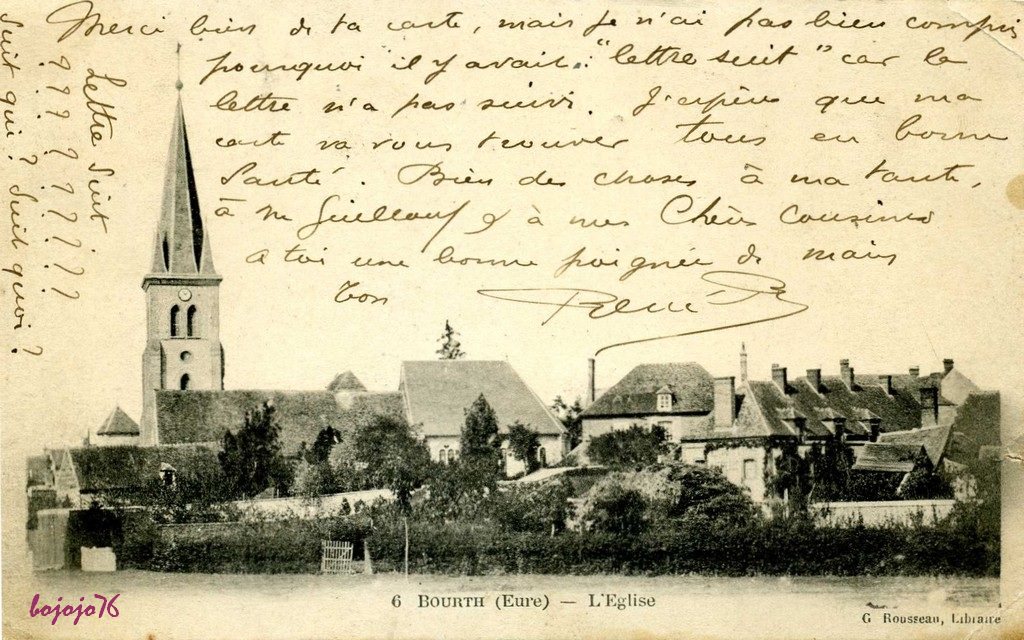 Merci bien de ta carte, mais je n'ai pas bien compris
pourquoi il y avait : "lettre suit" car la
lettre n'a pas suivi. J'espère que ma
carte va vous trouver tous en bonne
Santé. Bien des choses à ma tante,
à Me Guillouf & à mes Chers Cousins
A toi une bonne poignée de mains
Ton René B
Lettre Suit
? ? ? ? ? ? ? ? ?
Suit qui ? Suit quoi ?
6 BOURTH (Eure) — L'Eglise
G. Rousseau, Libraire
bojojo76